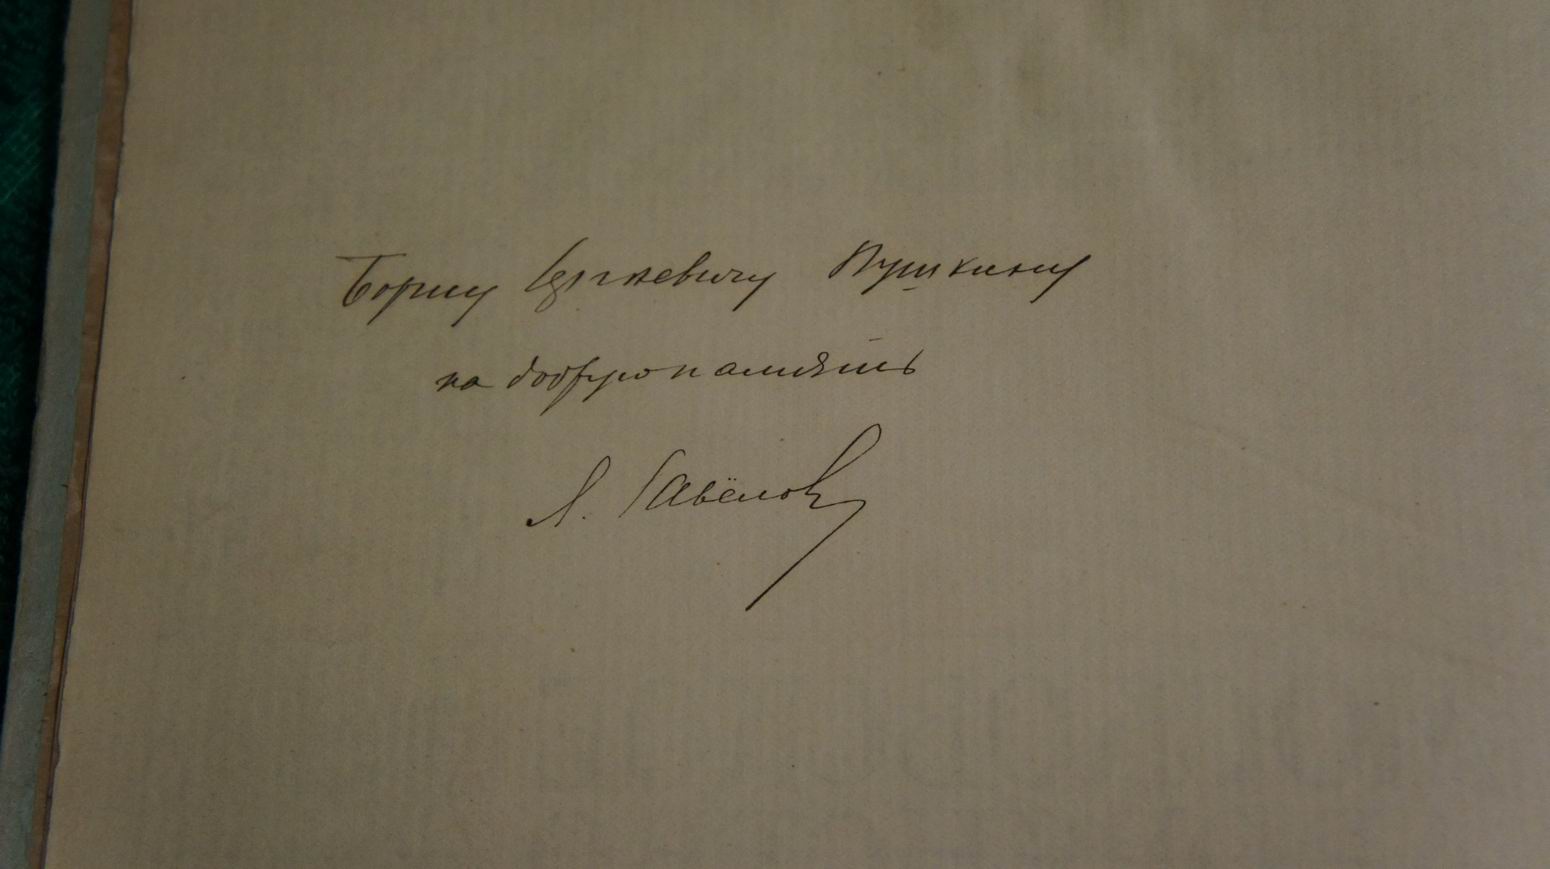 Борису Сергеевичу Пушкину
на добрую память
Л. Савёлов